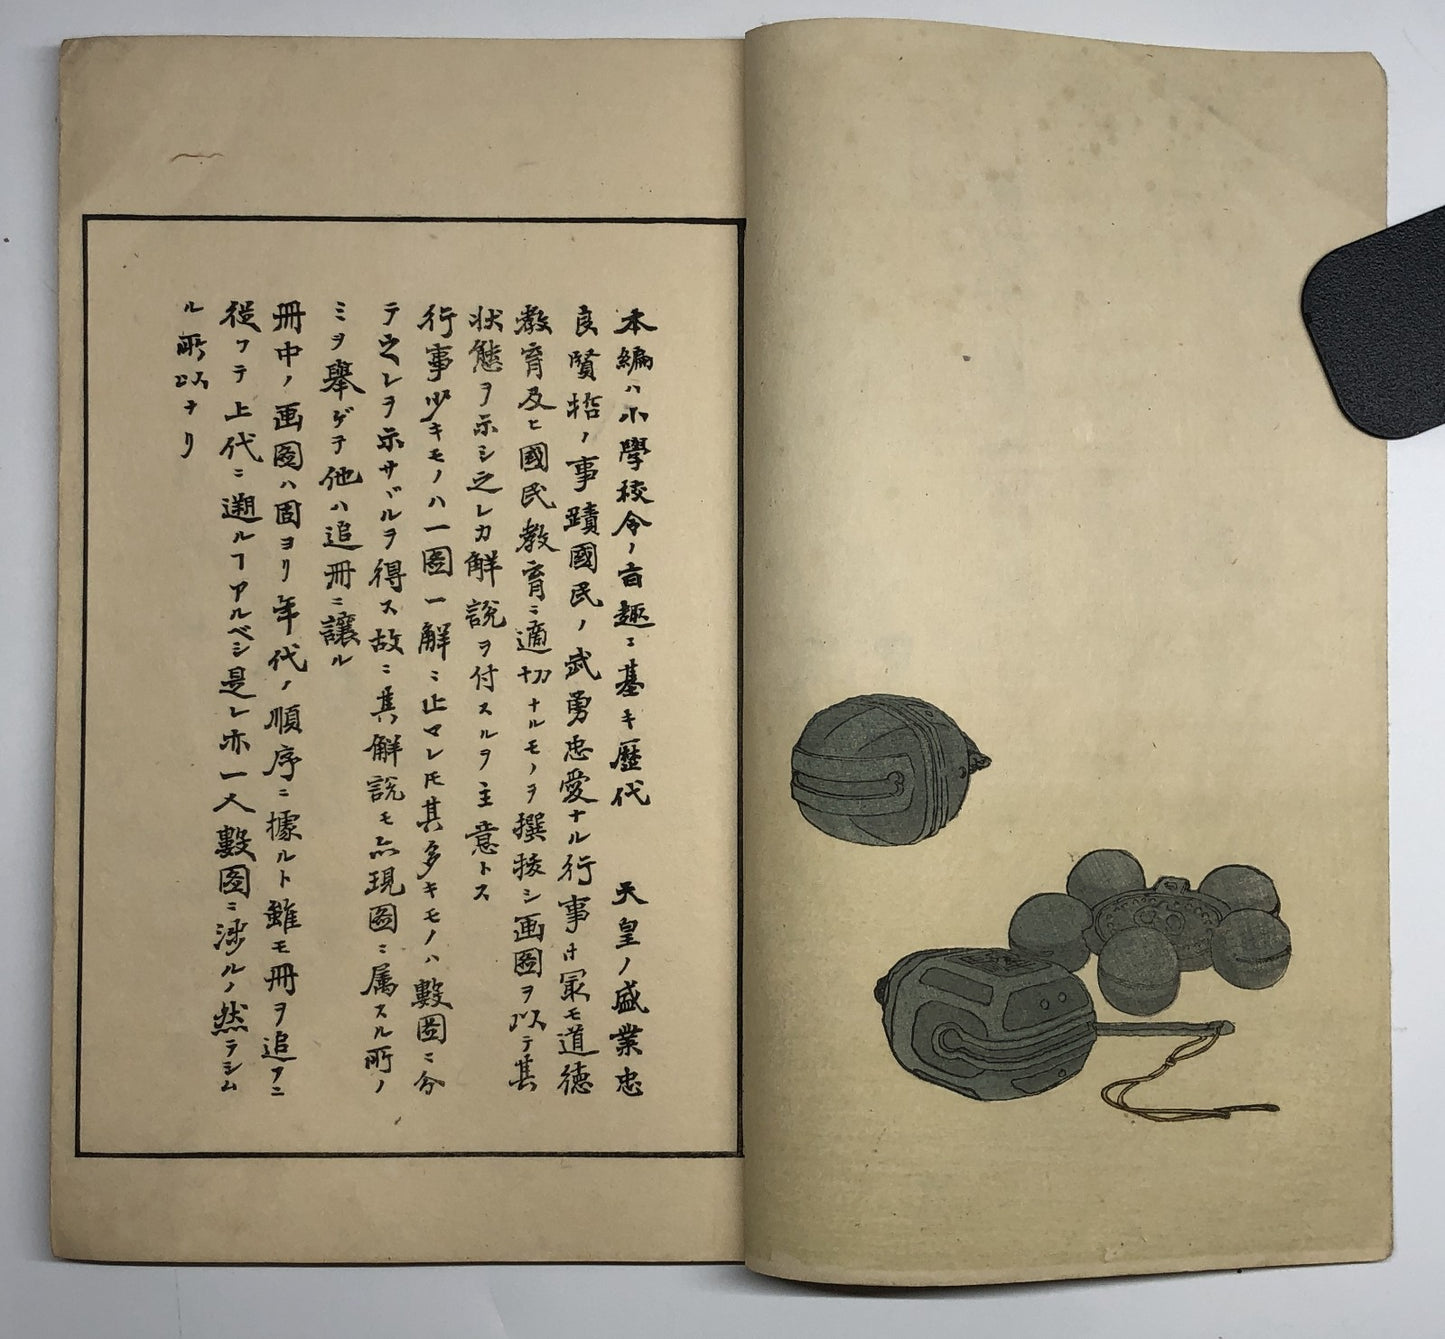 本編ハ小學校令ノ旨趣ニ基キ歷代　天皇ノ盛業忠
良賢哲ノ事蹟國民ノ武勇忠愛ナル行事ヨリ冣モ道德
教育及ヒ國民教育ニ適切ナルモノヲ撰拔シ画圖ヲ以テ其
状態ヲ示シ之レカ解說ヲ付スルヲ主意トス
行事少キモノハ一圖一解ニ止マレ𪜈其多キモノハ數圖ニ分
テ之レヲ示サヾルヲ得ス故ニ其解說モ亦現圖ニ属スル所ノ
ミヲ舉ゲテ他ハ追冊ニ讓ル
冊中ノ画圖ハ固ヨリ年代ノ順序ニ據ルト雖モ冊ヲ追フニ
從フテ上代ニ遡ルヿアルベシ是レ亦一人數圖ニ涉ルノ然ラシム
ル所以ナリ